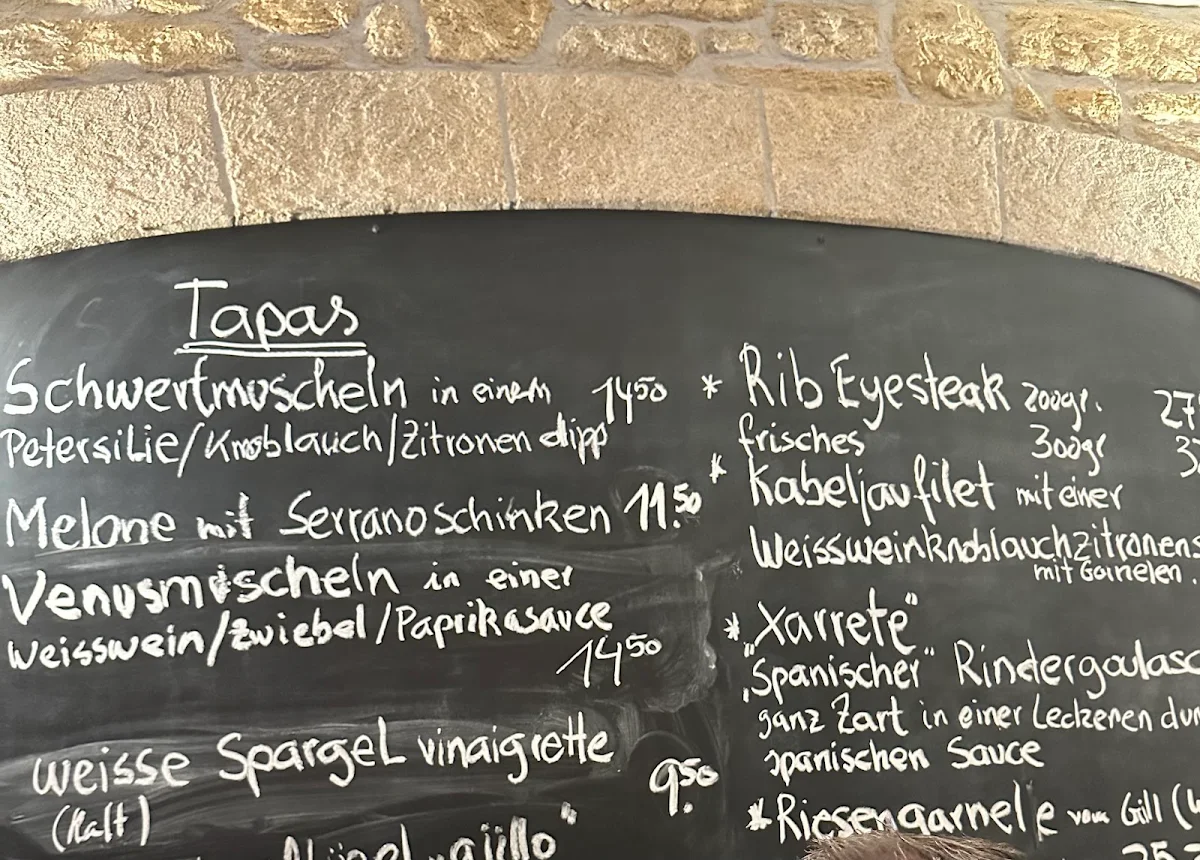 Tapas
Schwertmuscheln in einem 14.50
Petersilie/Knoblauch/Zitronen dipp
Melone mit Serranoschinken 11.50
Venusmuscheln in einer
weisswein/zwiebel/Paprikasauce
14.50
weisse Spargel vinaigrette
(Kalt) 9.50
"ajillo"
* Rib Eyesteak 200gr. 27
frisches 300gr 3
* Kabeljaufilet mit einer
Weissweinknoblauchzitronens
mit Garnelen
* "Xarrete"
"Spanischer" Rindergoulasc
ganz Zart in einer Leckeren
spanischen Sauce
* Riesengarnele vom Grill